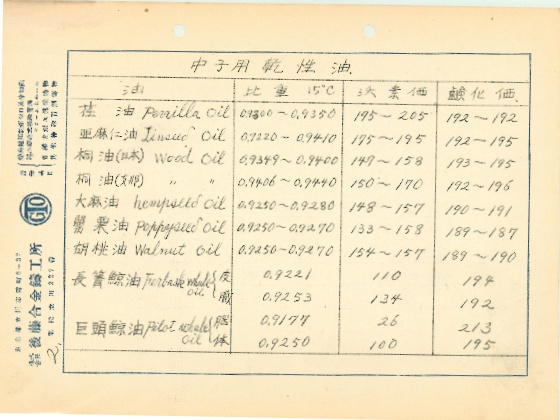 中子用乾性油.
油 比重 15℃ 沃素価 鹼化価.
荏油 Perrilla Oil 0.9300～0.9350 195～205 192～192
亜麻(仁)油 Linseed Oil 0.9220～0.9410 175～195 192～195
桐油(日本) Wood Oil 0.9349～0.9400 149～158 193～195
桐油(支那) 〃 〃 0.9406～0.9440 150～170 192～196
大麻油 hempseed Oil 0.9250～0.9280 148～157 190～191
罌粟油 Poppyseed Oil 0.9250～0.9270 133～158 189～187
胡桃油 Walnut Oil 0.9250～0.9270 154～157 189～190
長簀鯨油 whale oil 皮 0.9221 110 194
臓 0.9253 134 192
巨頭鯨油 Pilot whale Oil 脳 0.9177 26 213
体 0.9250 100 195
GTO
後藤合金鑄工所
2,